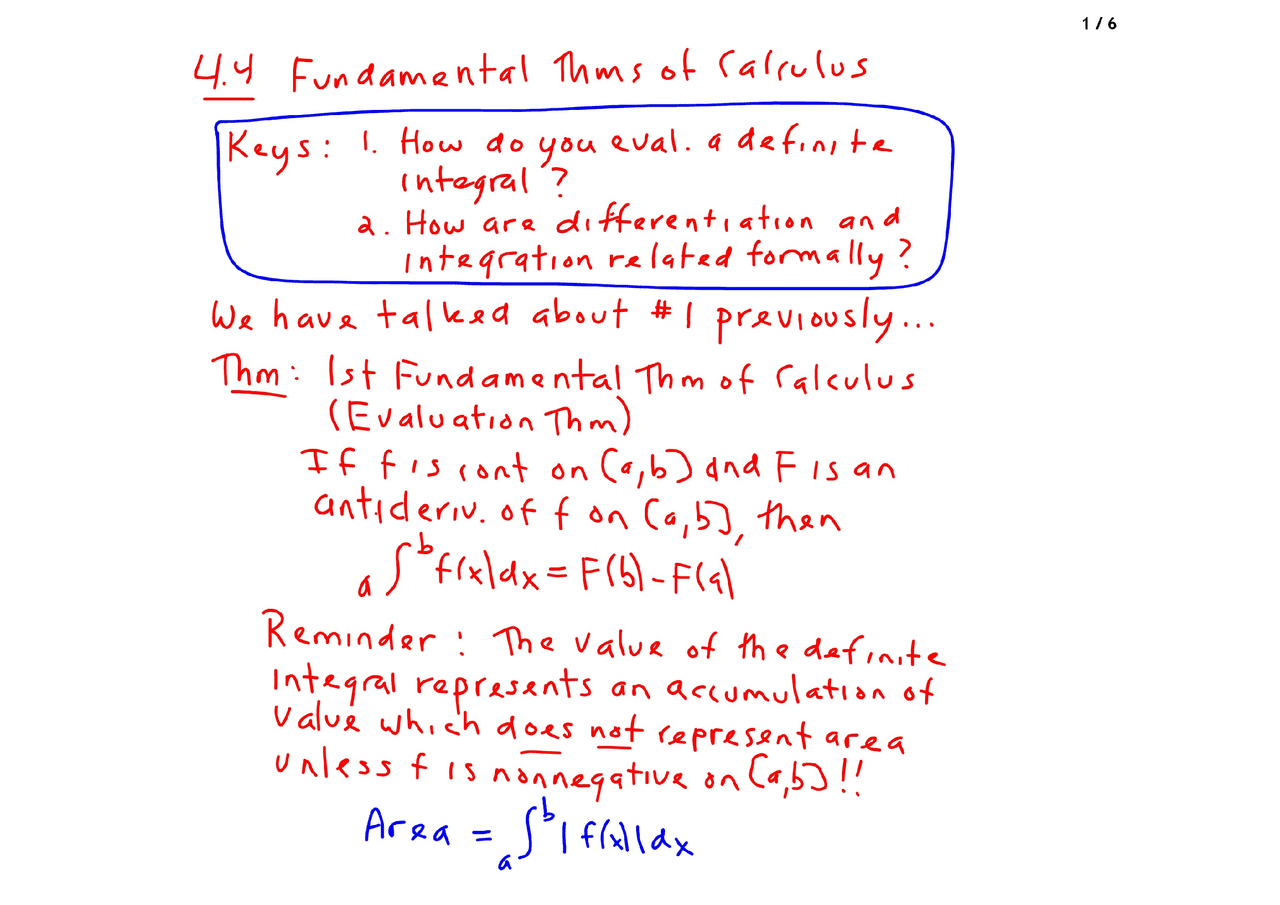 1 / 6
4.4 Fundamental Thms of Calculus
Keys: 1. How do you eval. a definite
integral?
2. How are differentiation and
integration related formally?
We have talked about #1 previously...
Thm: 1st Fundamental Thm of Calculus
(Evaluation Thm)
If f is cont on [a,b] and F is an
antideriv. of f on [a,b], then
a∫^b f(x)dx = F(b) - F(a)
Reminder: The value of the definite
integral represents an accumulation of
value which does not represent area
unless f is nonnegative on [a,b]!!
Area = a∫^b |f(x)|dx